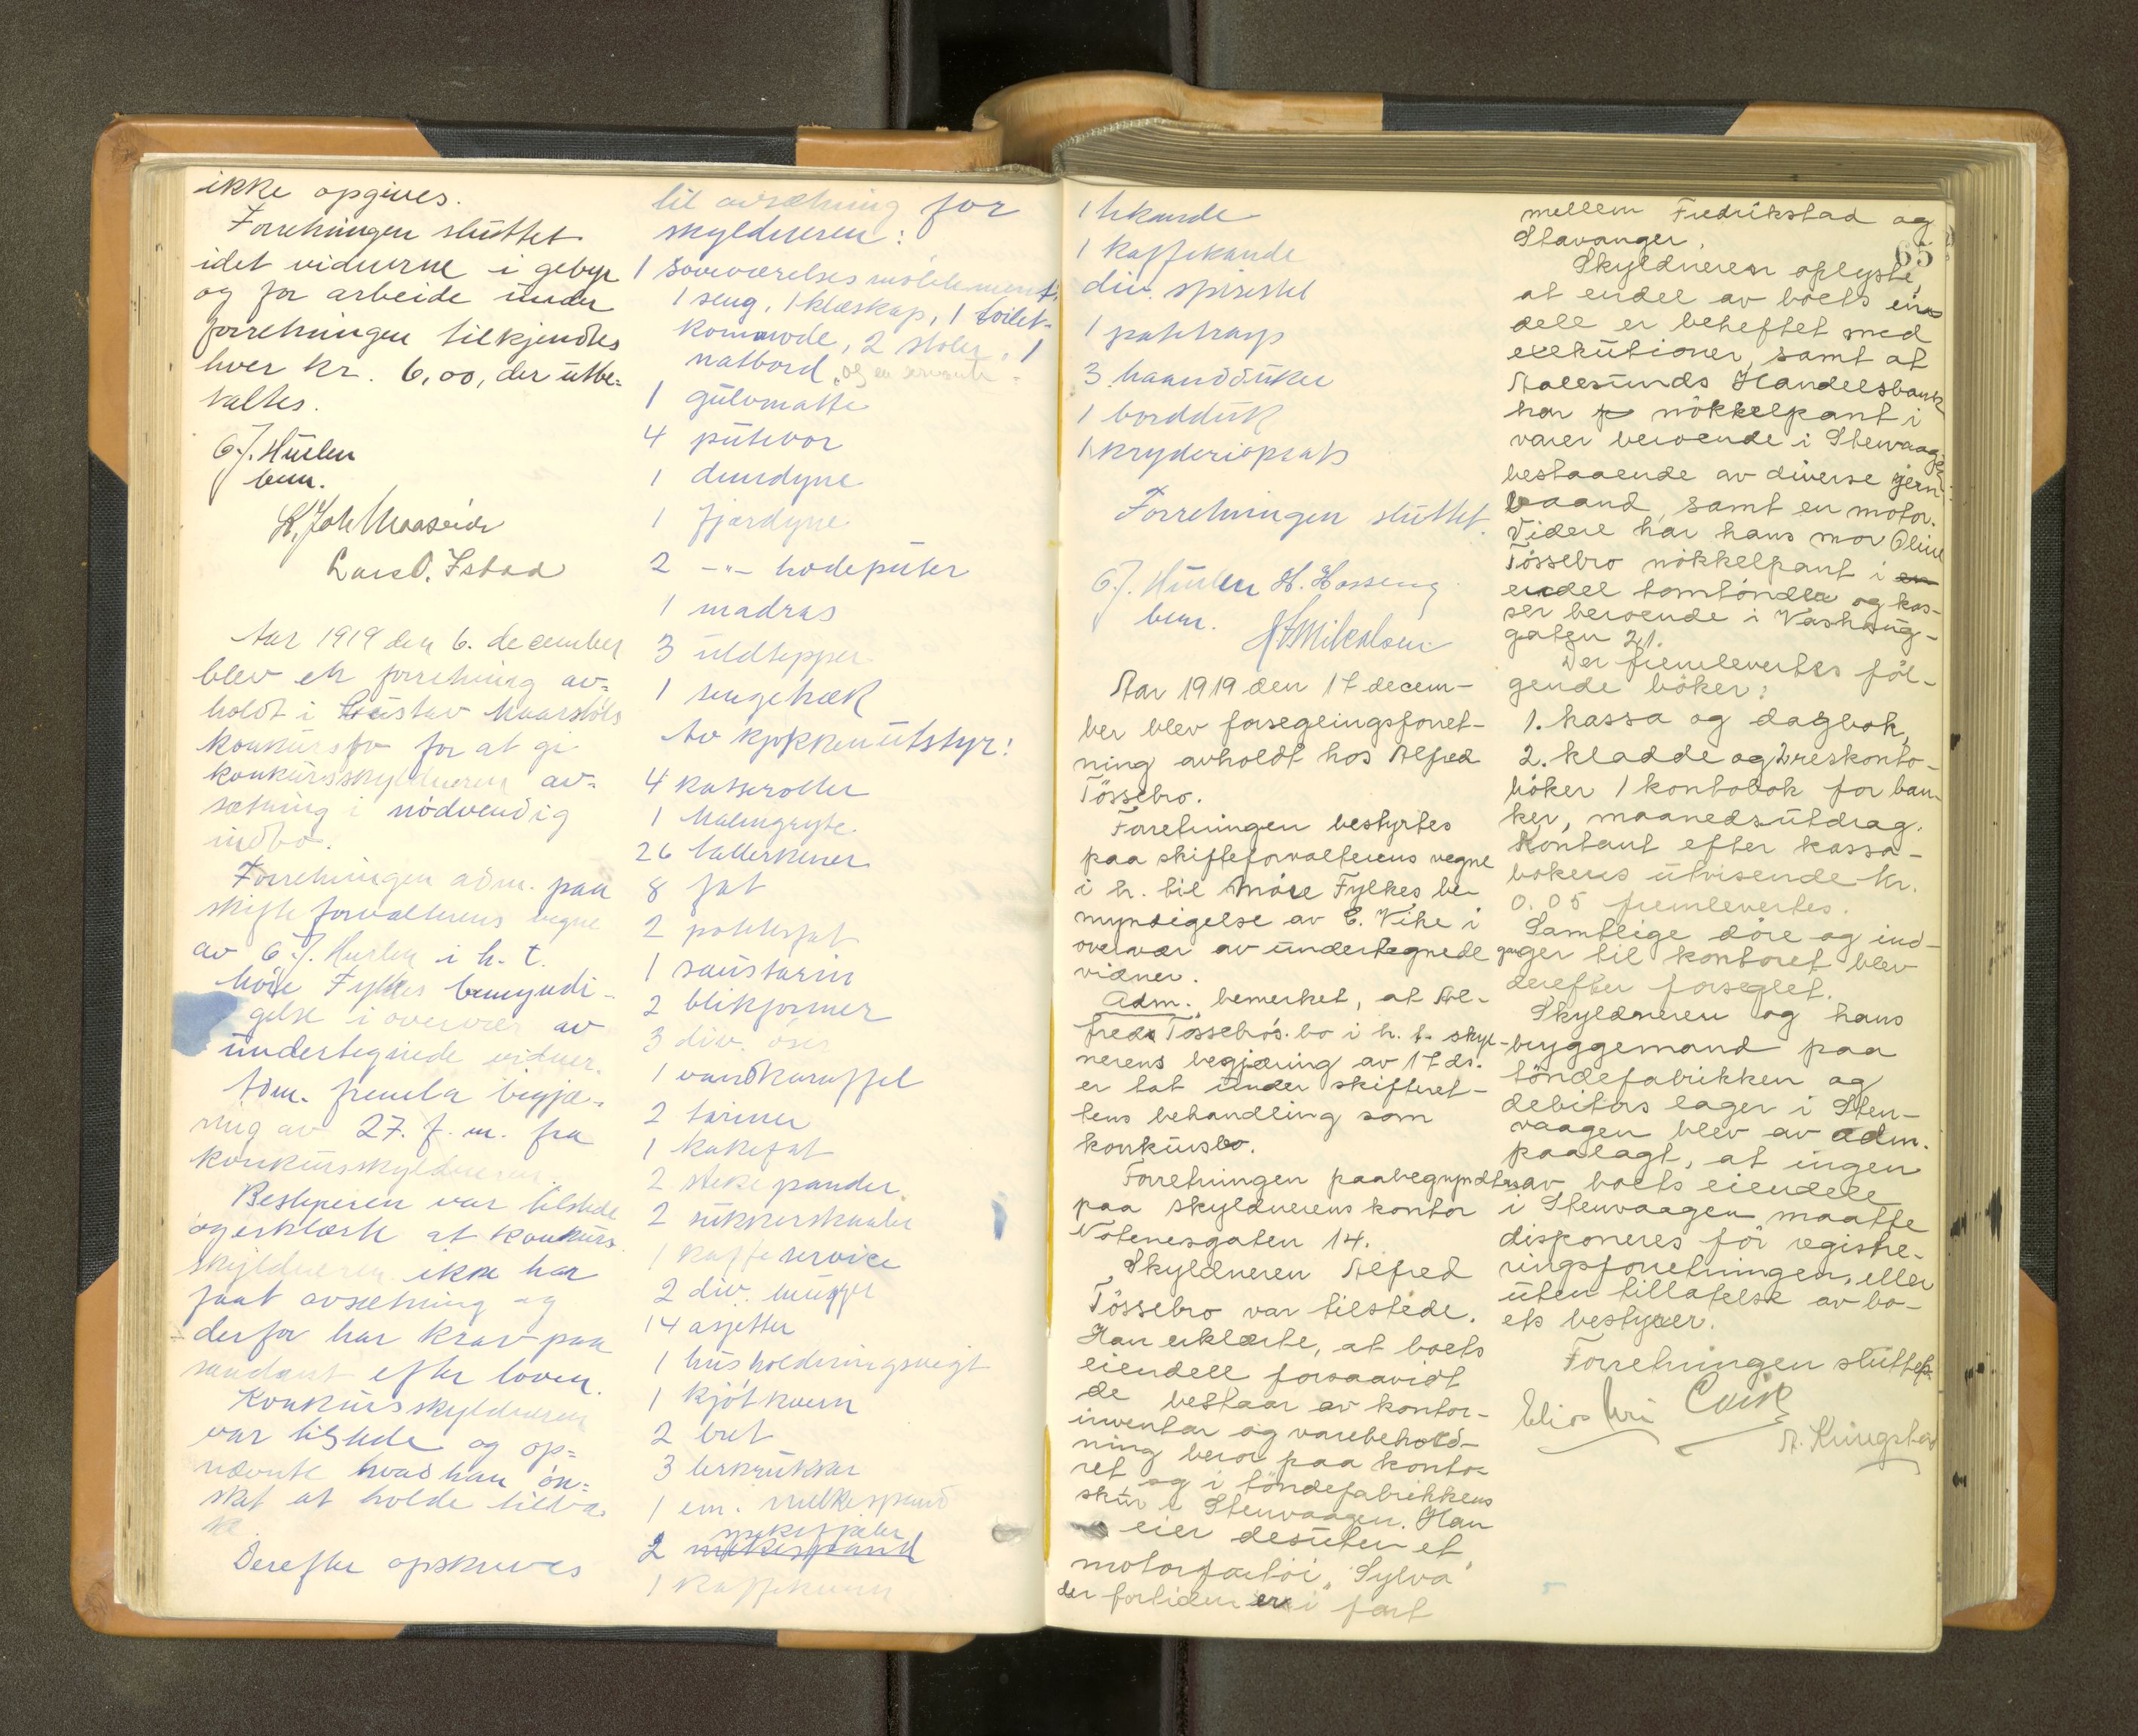 ikke opgives.
Forretningen sluttet
idet vidnerne i gebyr
og for arbeide under
forretningen tilkjendtes
hver kr. 6,00, der utbe=
taltes.
G. J. Hurlen
bem.
K. Joh Maaseide
Lars O. Istad
Aar 1919 den 6. december
blev en forretning av=
holdt i Gustav
konkursbo for at gi
konkursskyldneren av=
sætning i nödvendig
indbo.
Forretningen adm. paa
skifteforvalterens vegne
av G. J. Hurlen i h. t.
Möre Fylkes bemyndi-
gelse i overvær av
undertegnede vidner.
Adm. fremla begjæ-
ring av 27. f. m. fra
konkursskyldneren.
Bestyreren var tilstede
og erklærte at konkurs
skyldneren ikke har
faat avsætning og
derfor har krav paa
saadant efter loven.
Konkursskyldneren
var tilstede og op=
nævnte hvad han ön=
sket at holde tilba-
ke.
Derefter opskreves
til avsætning for
skyldneren:
1 soveværelsesmöblement,
1 seng, 1 klæskap, 1 toilet-
komode, 2 stoler, 1
natbord, og en
1 gulvmatte
4 putevor
1 dundyne
1 fjærdyne
2 -"- hodeputer
1 madras
3 uldtepper
1 sengetæk
Av kjøkkenutstyr:
4 kasseroller
1 Malmgryte
26 tallerkener
8 fat
2 potetesfat
1 sausterin
2 blikformer
3 div. öser
1 vandkaraffel
2 tæriner
1 kakefat
2 stekepander
2 sukkerskaaler
1 kaffeservice
2 div. mugger
14 asjetter
1 husholdningsvegt
1 kjötkvern
2 bret
3 lerkrukker
1 em. melkespand
spekefjæler
2 melkespand
1 Kaffekvern
1 tekande
1 kaffekande
div. spisestel
1 potetesrasp
3 haandduker
1 bordduk
1 kryderiopsats
Forretningen sluttet.
G. J. Hurlen H. Hasseng
bem.
Mikalsen
65
Aar 1919 den 17 decem-
ber blev forseglingsforret-
ning avholdt hos Alfred
Tössebro.
Forretningen bestyrtes
paa skifteforvalterens vegne
i h. til Möre Fylkes be
myndigelse av E. Vike i
overvær av undertegnede
vidner.
Adm. bemerket, at Al-
freds Tössebro's bo i h. t. skyl-
nerens begjæring av 17 ds.
er tat under skifteret-
tens behandling som
konkursbo.
Forretningen paabegyndtes
paa skyldnerens kontor
Nötenesgaten 14.
Skyldneren Alfred
Tössebro var tilstede.
Han erklærte, at boets
eiendele forsaavidt
de bestaar av kontor-
inventar og varebehold-
ning beror paa konto-
ret og i töndefabrikkens
skur i Stenvaagen. Han
eier desuten et
motorfartöi „Sylva"
der fortiden er i fart
mellem Fredrikstad og
Stavanger.
Skyldneren oplyste,
at endel av boets eien
dele er beheftet med
exekutioner, samt at
Aalesunds Handelsbank
har nökkelpant i
varer beroende i Stenvaagen
bestaaende av diverse jern
baand, samt en motor.
Videre har hans mor Oline
Tössebro nökkelpant i en
endel tomtönder og kas-
ser beroende i Vashaug-
gaten 21.
Der fremlevertes föl-
gende böker:
1. kassa og dagbok,
2. kladde og 2 reskonto-
böker 1 kontobok for ban-
ker, maanedsutdrag.
Kontant efter kassa-
bokens utvisende kr.
0.05 fremlevertes.
Samtlige döre og ind-
ganger til kontoret blev
derefter forseglet.
Skyldneren og hans
bryggemand paa
töndefabrikken og
debitors lager i Sten-
vaagen blev av adm.
paalagt, at ingen
av boets eiendele
i Stenvaagen maatte
disponeres för registre-
ringsforretningen, eller
uten tillatelse av bo-
ets bestyrer.
Forretningen sluttet.
Elias Vike
A. Kringstad